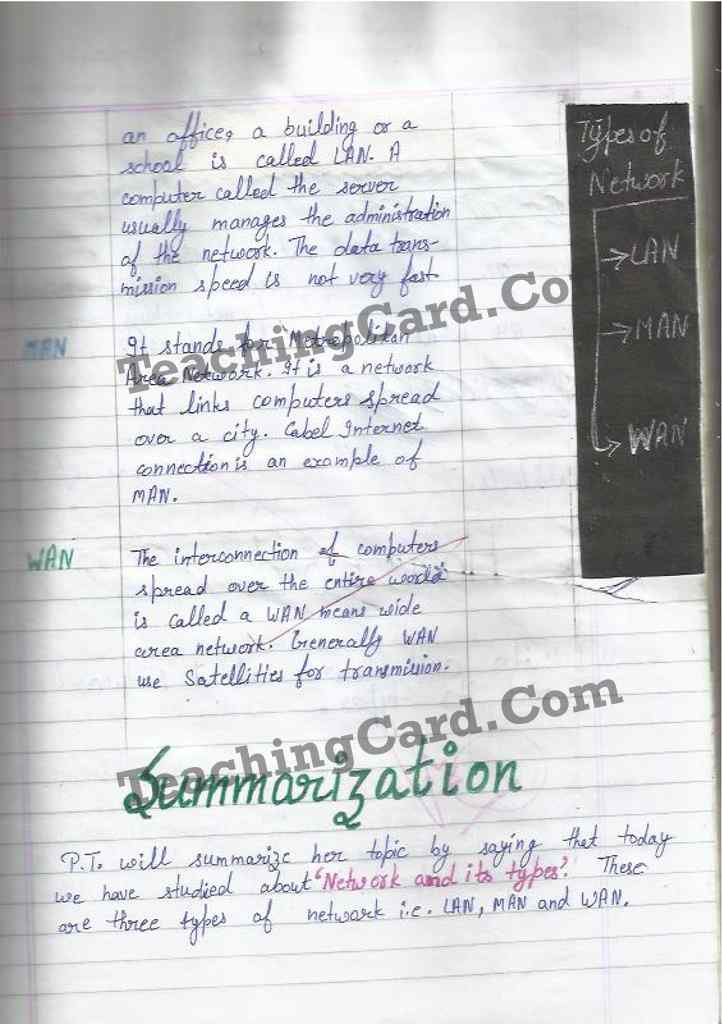 an office, a building or a
school is called LAN. A
computer called the server
usually manages the administration
of the network. The data trans-
mission speed is not very fast.
MAN
It stands for Metropolitan
Area Network. It is a network
that links computers spread
over a city. Cabel Internet
connection is an example of
MAN.
WAN
The interconnection of computers
spread over the entire world
is called a WAN means wide
area network. Generally WAN
use Satellities for transmission.
Types of
Network
→LAN
→MAN
→WAN
TeachingCard.Com
TeachingCard.Com
Summarization
P.T. will summarize her topic by saying that today
we have studied about 'Network and its types'. These
are three types of network i.e. LAN, MAN and WAN.